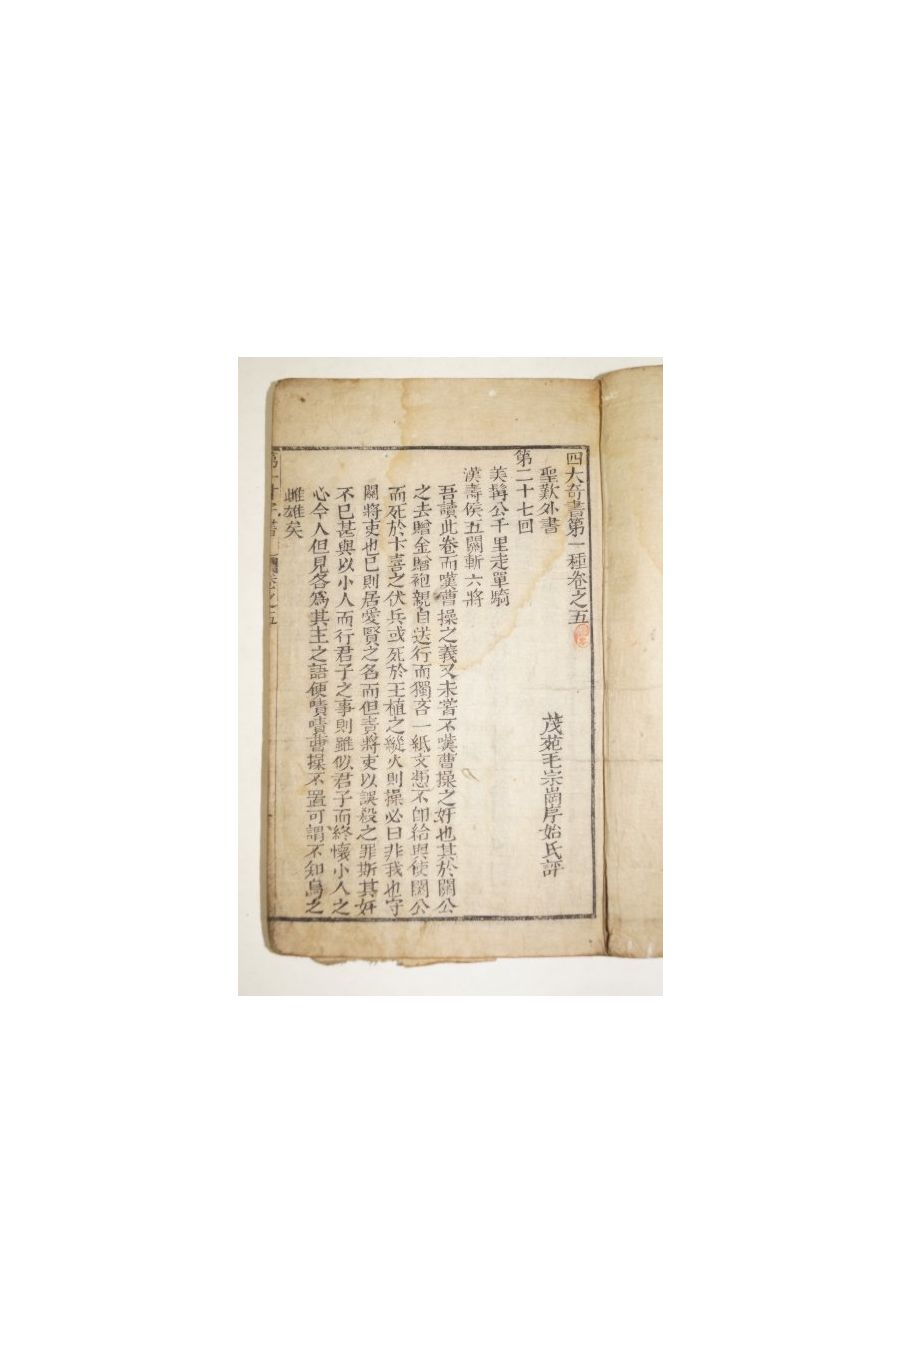 四大奇書第一種卷之五
聖歎外書
茂苑毛宗崗序始氏評
第二十七回
美髯公千里走單騎
漢壽侯五關斬六將
吾讀此卷而嘆曹操之義又未嘗不嘆曹操之奸也其於關公
之去贈金贈袍親自送行而獨吝一紙文憑不即給與使關公
而死於卞喜之伏兵或死於王植之縱火則操必曰非我也守
關將吏也已則居愛賢之名而但責將吏以誤殺之罪斯其奸
不已甚與以小人而行君子之事則雖似君子而終懷小人之
心今人但見各爲其主之語便嘖嘖曹操不置可謂不知烏之
雌雄矣
卷之五